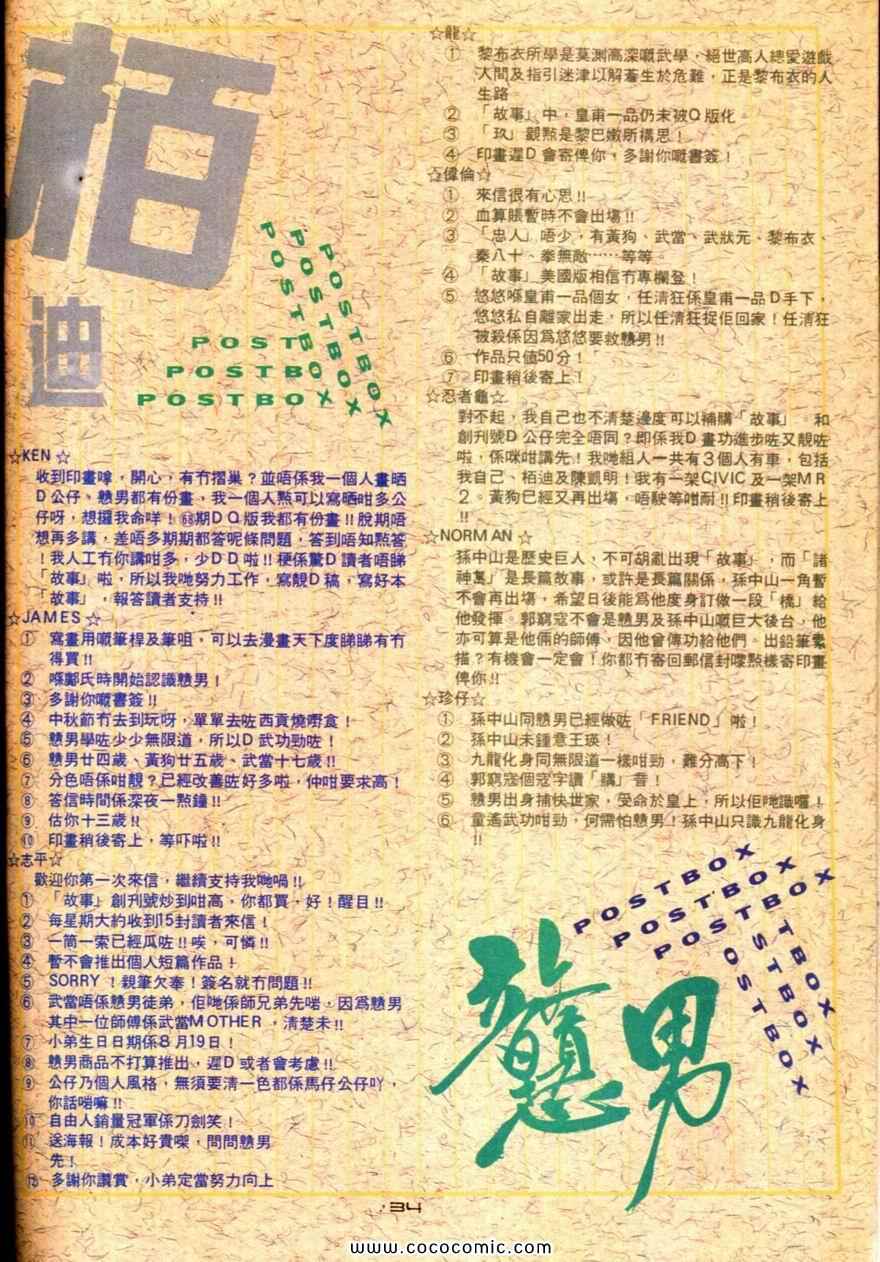 栢
迪
POSTBOX
POSTBOX
POSTBOX
POSTBOX
POSTBOX
POSTBOX
☆KEN☆
收到印畫嗱,開心,有冇摺巢?並唔係我一個人畫晒
D公仔、戇男都有份畫,我一個人點可以寫晒咁多公
仔呀,想攞我命咩!68期DQ版我都有份畫!!脫期唔
想再多講,差唔多期期都答呢條問題,答到唔知點答
!我人工冇你講咁多,少DD啦!!梗係驚D讀者唔睇
「故事」啦,所以我哋努力工作,寫靚D稿,寫好本
「故事」,報答讀者支持!!
☆JAMES☆
① 寫畫用嘅筆桿及筆咀,可以去漫畫天下度睇睇有冇
得買!!
② 喺鄺氏時開始認識戇男!
③ 多謝你嘅書簽!!
④ 中秋節冇去到玩呀,單單去咗西貢燒嘢食!
⑤ 戇男學咗少少無限道,所以D武功勁咗!
⑥ 戇男廿四歲、黃狗廿五歲、武當十七歲!!
⑦ 分色唔係咁靚?已經改善咗好多啦,仲咁要求高!
⑧ 答信時間係深夜一點鐘!!
⑨ 估你十三歲!!
⑩ 印畫稍後寄上,等吓啦!!
☆志平☆
歡迎你第一次來信,繼續支持我哋喎!!
① 「故事」創刊號炒到咁高,你都買,好!醒目!!
② 每星期大約收到15封讀者來信!
③ 一筒一索已經瓜咗!!唉,可憐!!
④ 暫不會推出個人短篇作品!
⑤ SORRY!親筆欠奉!簽名就冇問題!!
⑥ 武當唔係戇男徒弟,佢哋係師兄弟先啱,因為戇男
其中一位師傅係武當MOTHER,清楚未!!
⑦ 小弟生日日期係8月19日!
⑧ 戇男商品不打算推出,遲D或者會考慮!!
⑨ 公仔乃個人風格,無須要清一色都係馬仔公仔吖,
你話啱嘛!!
⑩ 自由人銷量冠軍係刀劍笑!
⑪ 送海報!成本好貴㗎,問問戇男
先!
⑫ 多謝你讚賞,小弟定當努力向上
☆龍☆
① 黎布衣所學是莫測高深嘅武學,絕世高人總愛遊戲
人間及指引迷津以解蒼生於危難,正是黎布衣的人
生路
② 「故事」中,皇甫一品仍未被Q版化。
③ 「玖」觀點是黎巴嫩所構思!
④ 印畫遲D會寄俾你,多謝你嘅書簽!
☆偉倫☆
① 來信很有心思!!
② 血算賬暫時不會出場!!
③ 「忠人」唔少,有黃狗、武當、武狀元、黎布衣、
秦八十、拳無敵……等等。
④ 「故事」美國版相信冇專欄登!
⑤ 悠悠喺皇甫一品個女,任清狂係皇甫一品D手下,
悠悠私自離家出走,所以任清狂捉佢回家!任清狂
被殺係因為悠悠要救戇男!!
⑥ 作品只值50分!
⑦ 印畫稍後寄上!
☆忍者龜☆
對不起,我自己也不清楚邊度可以補購「故事」。和
創刊號D公仔完全唔同?即係我D畫功進步咗又靚咗
啦,係咪咁講先!我哋組人一共有3個人有車,包括
我自己、栢迪及陳凱明!我有一架CIVIC及一架MR
2。黃狗已經又再出場,唔駛等咁耐!!印畫稍後寄上
!!
☆NORMAN☆
孫中山是歷史巨人、不可胡亂出現「故事」,而「諸
神篇」是長篇故事,或許是長篇關係,孫中山一角暫
不會再出場,希望日後能為他度身訂做一段「橋」給
他發揮。郭窮寇不會是戇男及孫中山嘅巨大後台,他
亦可算是他倆的師傅,因他曾傳功給他們。出鉛筆素
描?有機會一定會!你都冇寄回郵信封嚟點樣寄印畫
俾你!!
☆珍仔☆
① 孫中山同戇男已經做咗「FRIEND」啦!
② 孫中山未鍾意王瑛!
③ 九龍化身同無限道一樣咁勁,難分高下!
④ 郭窮寇個寇字讀「購」音!
⑤ 戇男出身捕快世家,受命於皇上,所以佢哋識囉!
⑥ 童遙武功咁勁,何需怕戇男!孫中山只識九龍化身
!!
POSTBOX
POSTBOX
POSTBOX
TBOX
STBOX
OSTBOX
戇男
34
www.cococomic.com